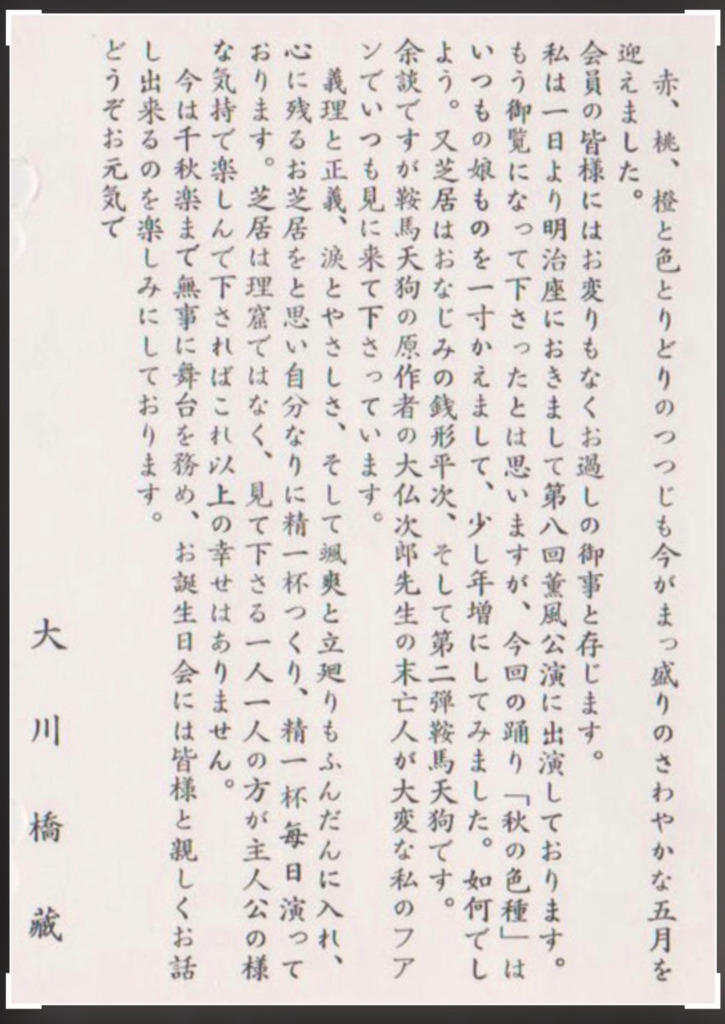 赤、桃、橙と色とりどりのつつじも今がまっ盛りのさわやかな五月を
迎えました。
会員の皆様にはお変りもなくお過しの御事と存じます。
私は一日より明治座におきまして第八回薫風公演に出演しております。
もう御覧になって下さったとは思いますが、今回の踊り「秋の色種」は
いつもの娘ものを一寸かえまして、少し年増にしてみました。如何でし
よう。又芝居はおなじみの銭形平次、そして第二弾鞍馬天狗です。
余談ですが鞍馬天狗の原作者の大仏次郎先生の末亡人が大変な私のファ
ンでいつも見に来て下さっています。
義理と正義、涙とやさしさ、そして颯爽と立廻りもふんだんに入れ、
心に残るお芝居をと思い自分なりに精一杯つくり、精一杯毎日演って
おります。芝居は理窟ではなく、見て下さる一人一人の方が主人公の様
な気持で楽しんで下さればこれ以上の幸せはありません。
今は千秋楽まで無事に舞台を務め、お誕生日会には皆様と親しくお話
し出来るのを楽しみにしております。
どうぞお元気で
大川橋蔵